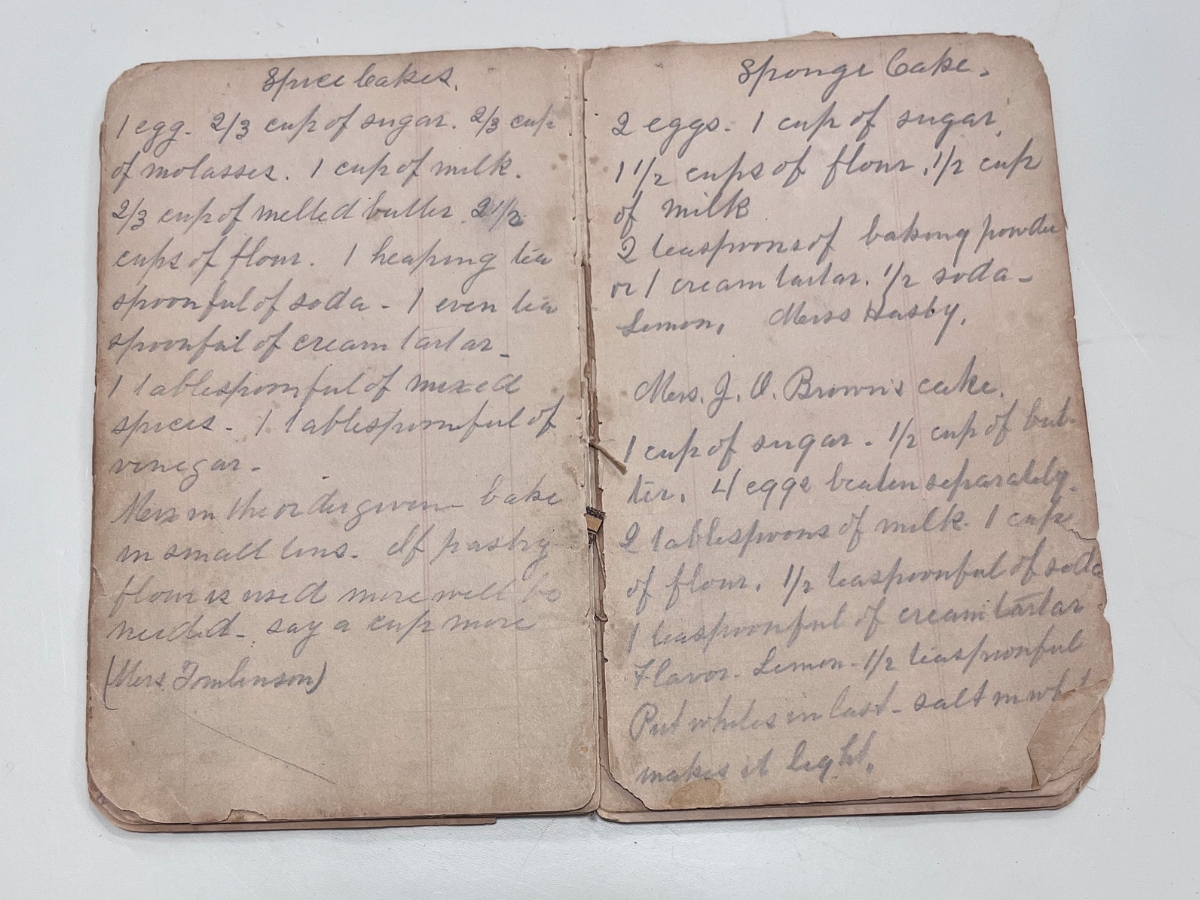 Spice Cakes.
1 egg. 2/3 cup of sugar. 2/3 cup
of molasses. 1 cup of milk.
2/3 cup of melted butter. 2 1/2
cups of flour. 1 heaping tea
spoonful of soda - 1 even tea
spoonful of cream tartar -
1 tablespoonful of mixed
spices - 1 tablespoonful of
vinegar -
in the order given - bake
in small tins. If pastry
flour is used more will be
needed - say a cup more
(Mrs. Tomlinson)
Sponge Cake.
2 eggs. 1 cup of sugar,
1 1/2 cups of flour. 1/2 cup
of milk
2 teaspoons of baking powder
or 1 cream tartar. 1/2 soda -
Lemon.
Mrs. J. O. Brown's cake.
1 cup of sugar. 1/2 cup of but-
ter. 4 eggs beaten separately.
2 tablespoons of milk. 1 cup
of flour. 1/2 teaspoonful of soda
1 teaspoonful of cream tartar
Flavor. Lemon - 1/2 teaspoonful
Put whites in last - salt in
makes it light.